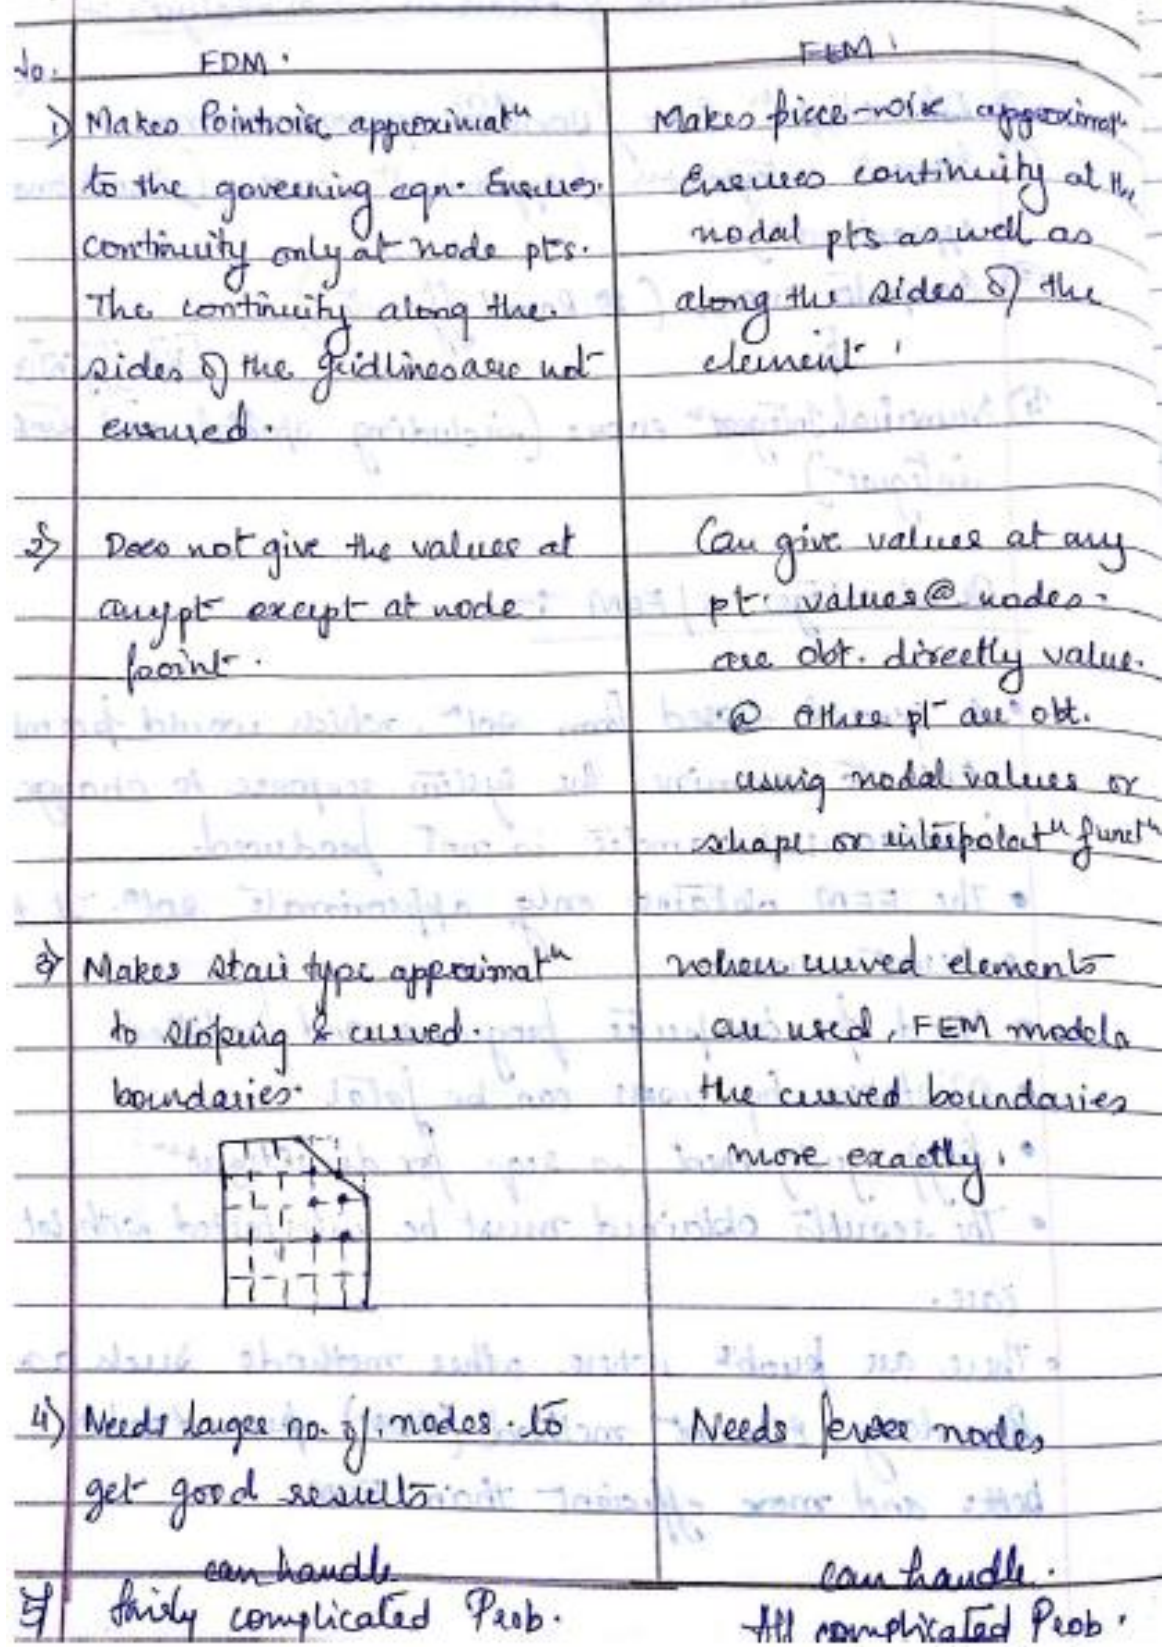 No. FDM. FEM.
1) Makes Pointwise approximatn
to the governing eqn. Ensures
continuity only at node pts.
The continuity along the
sides of the gridlines are not
ensured.
Makes piece-wise approximatn
Ensures continuity at the
nodal pts as well as
along the sides of the
element.
2) Does not give the values at
any pt except at node
point.
Can give values at any
pt. values @ nodes
are obt. directly value
@ other pt are obt.
using nodal values or
shape or interpolatn functn
3) Makes Stair type approximatn
to sloping & curved
boundaries.
when curved elements
are used, FEM models
the curved boundaries
more exactly.
4) Needs larger no. of nodes to
get good results
Needs fewer nodes
5) can handle
fairly complicated Prob.
can handle.
All complicated Prob.